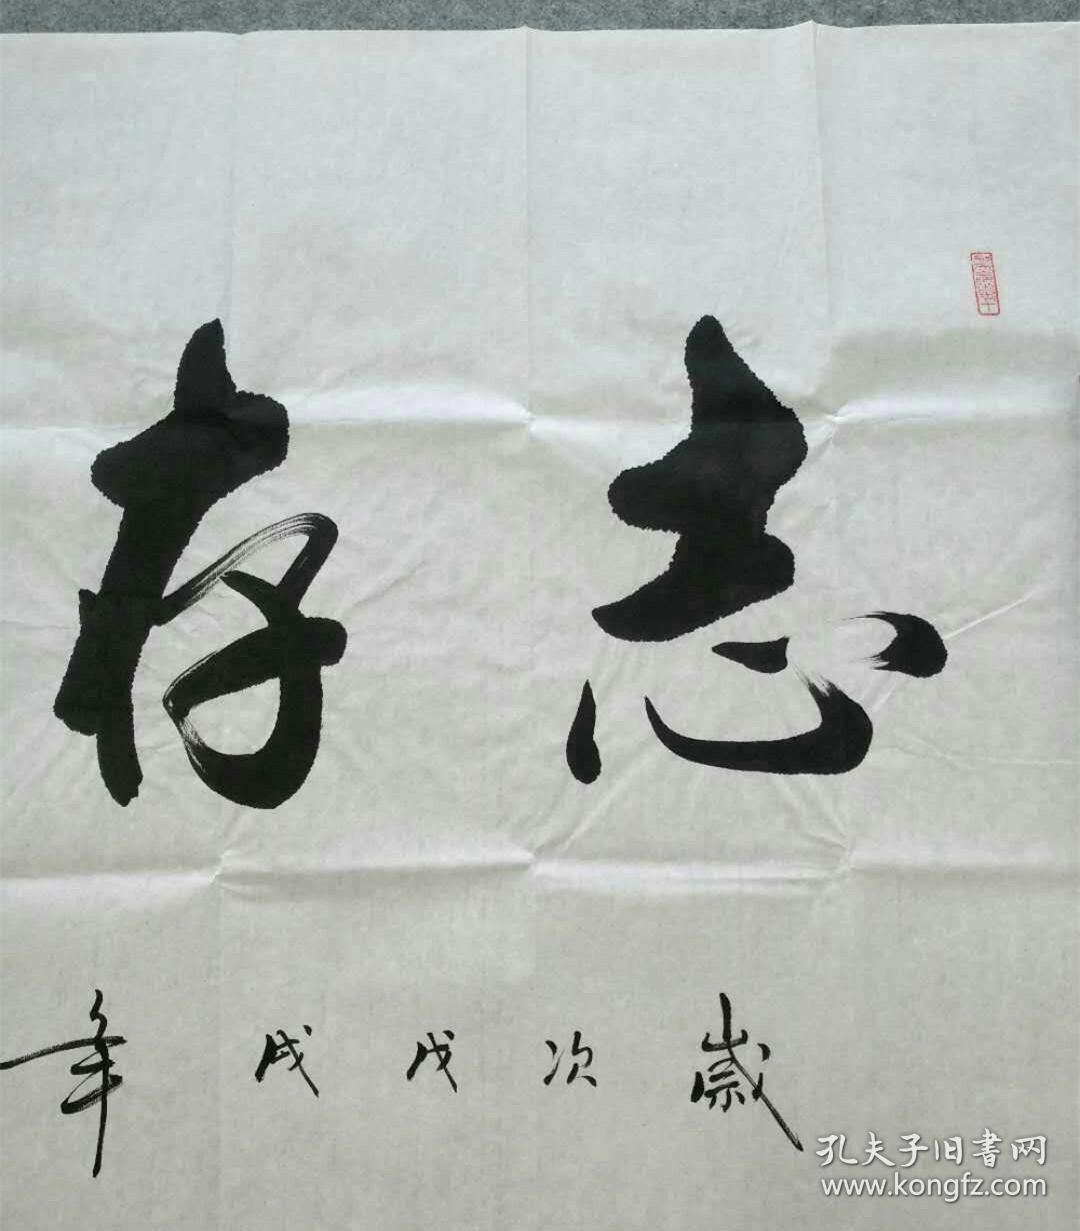 志存
歲次戊戌年
孔夫子旧書网
www.kongfz.com